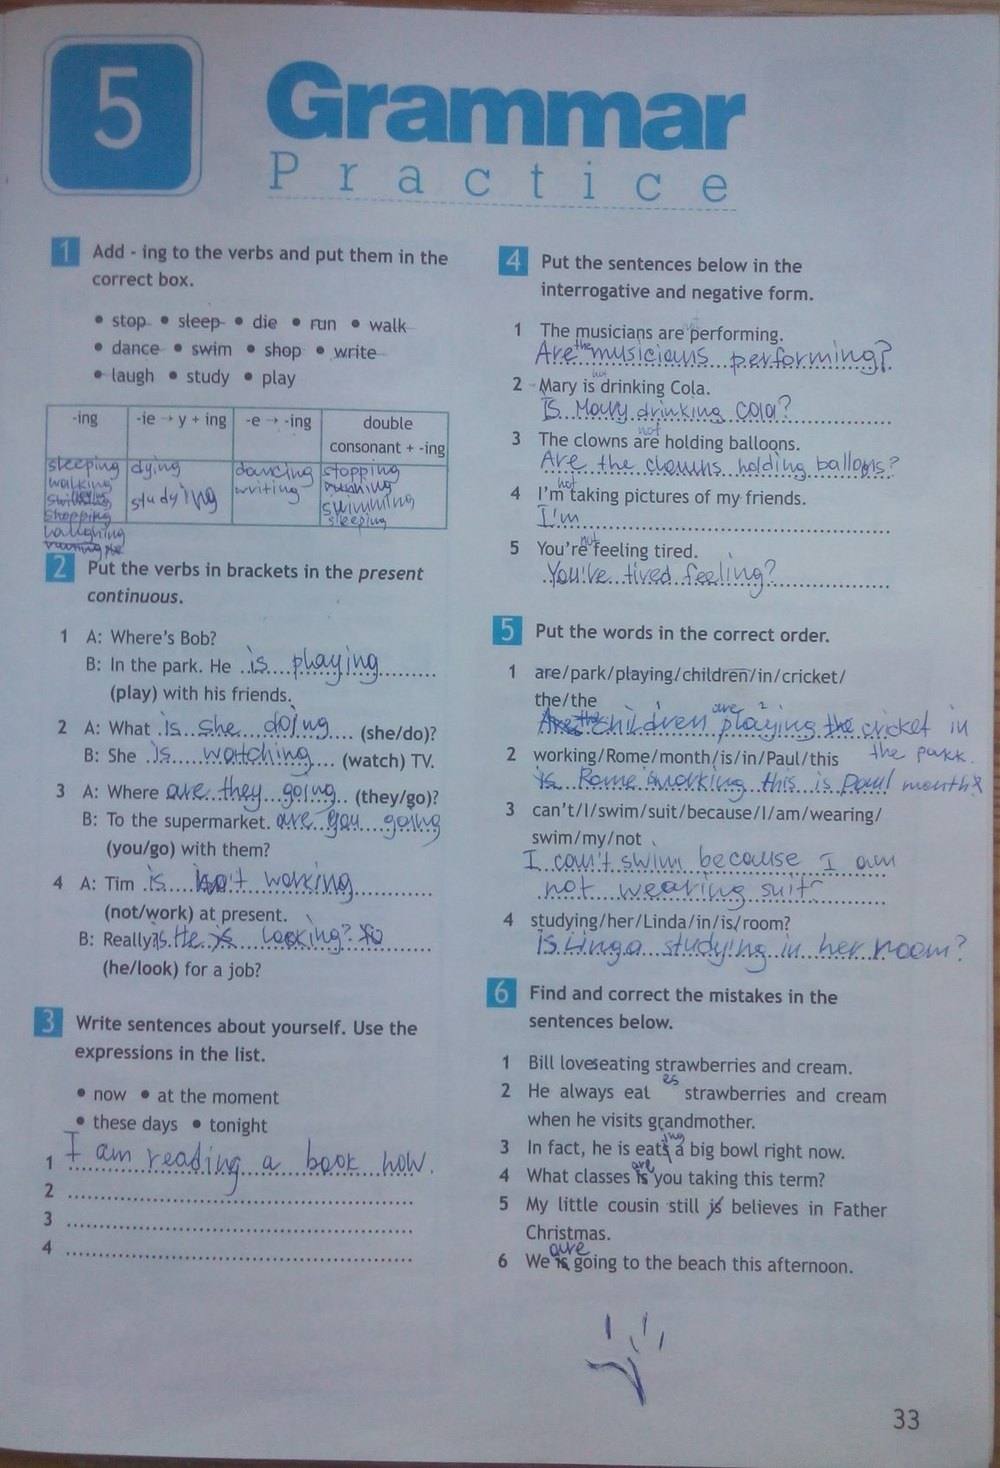 5
Grammar
Practice
1 Add - ing to the verbs and put them in the
correct box.
• stop • sleep • die • run • walk
• dance • swim • shop • write
• laugh • study • play
-ing
-ie → y + ing
-e → -ing
double
consonant + -ing
sleeping
walking
shopping
laughing
dying
studying
dancing
writing
stopping
swimming
sleeping
2 Put the verbs in brackets in the present
continuous.
1 A: Where's Bob?
B: In the park. He is playing
(play) with his friends.
2 A: What is she doing (she/do)?
B: She is watching (watch) TV.
3 A: Where are they going (they/go)?
B: To the supermarket. are you going
(you/go) with them?
4 A: Tim is isn't working
(not/work) at present.
B: Really? is He is looking?
(he/look) for a job?
3 Write sentences about yourself. Use the
expressions in the list.
• now • at the moment
• these days • tonight
1 I am reading a book now.
2
3
4
4 Put the sentences below in the
interrogative and negative form.
1 The musicians are not performing.
Are the musicians performing?
2 Mary is not drinking Cola.
Is Mary drinking cola?
3 The clowns are not holding balloons.
Are the clowns holding balloons?
4 I'm not taking pictures of my friends.
I'm
5 You're not feeling tired.
You're tired feeling?
5 Put the words in the correct order.
1 are/park/playing/children/in/cricket/
the/the
children are playing the cricket in
the park
2 working/Rome/month/is/in/Paul/this
is Rome working this is Paul month?
3 can't/I/swim/suit/because/I/am/wearing/
swim/my/not
I can't swim because I am
not wearing suit
4 studying/her/Linda/in/is/room?
is Linga studying in her room?
6 Find and correct the mistakes in the
sentences below.
1 Bill loveseating strawberries and cream.
2 He always eat es strawberries and cream
when he visits grandmother.
3 In fact, he is eats ing a big bowl right now.
4 What classes is are you taking this term?
5 My little cousin still is believes in Father
Christmas.
6 We is are going to the beach this afternoon.
33